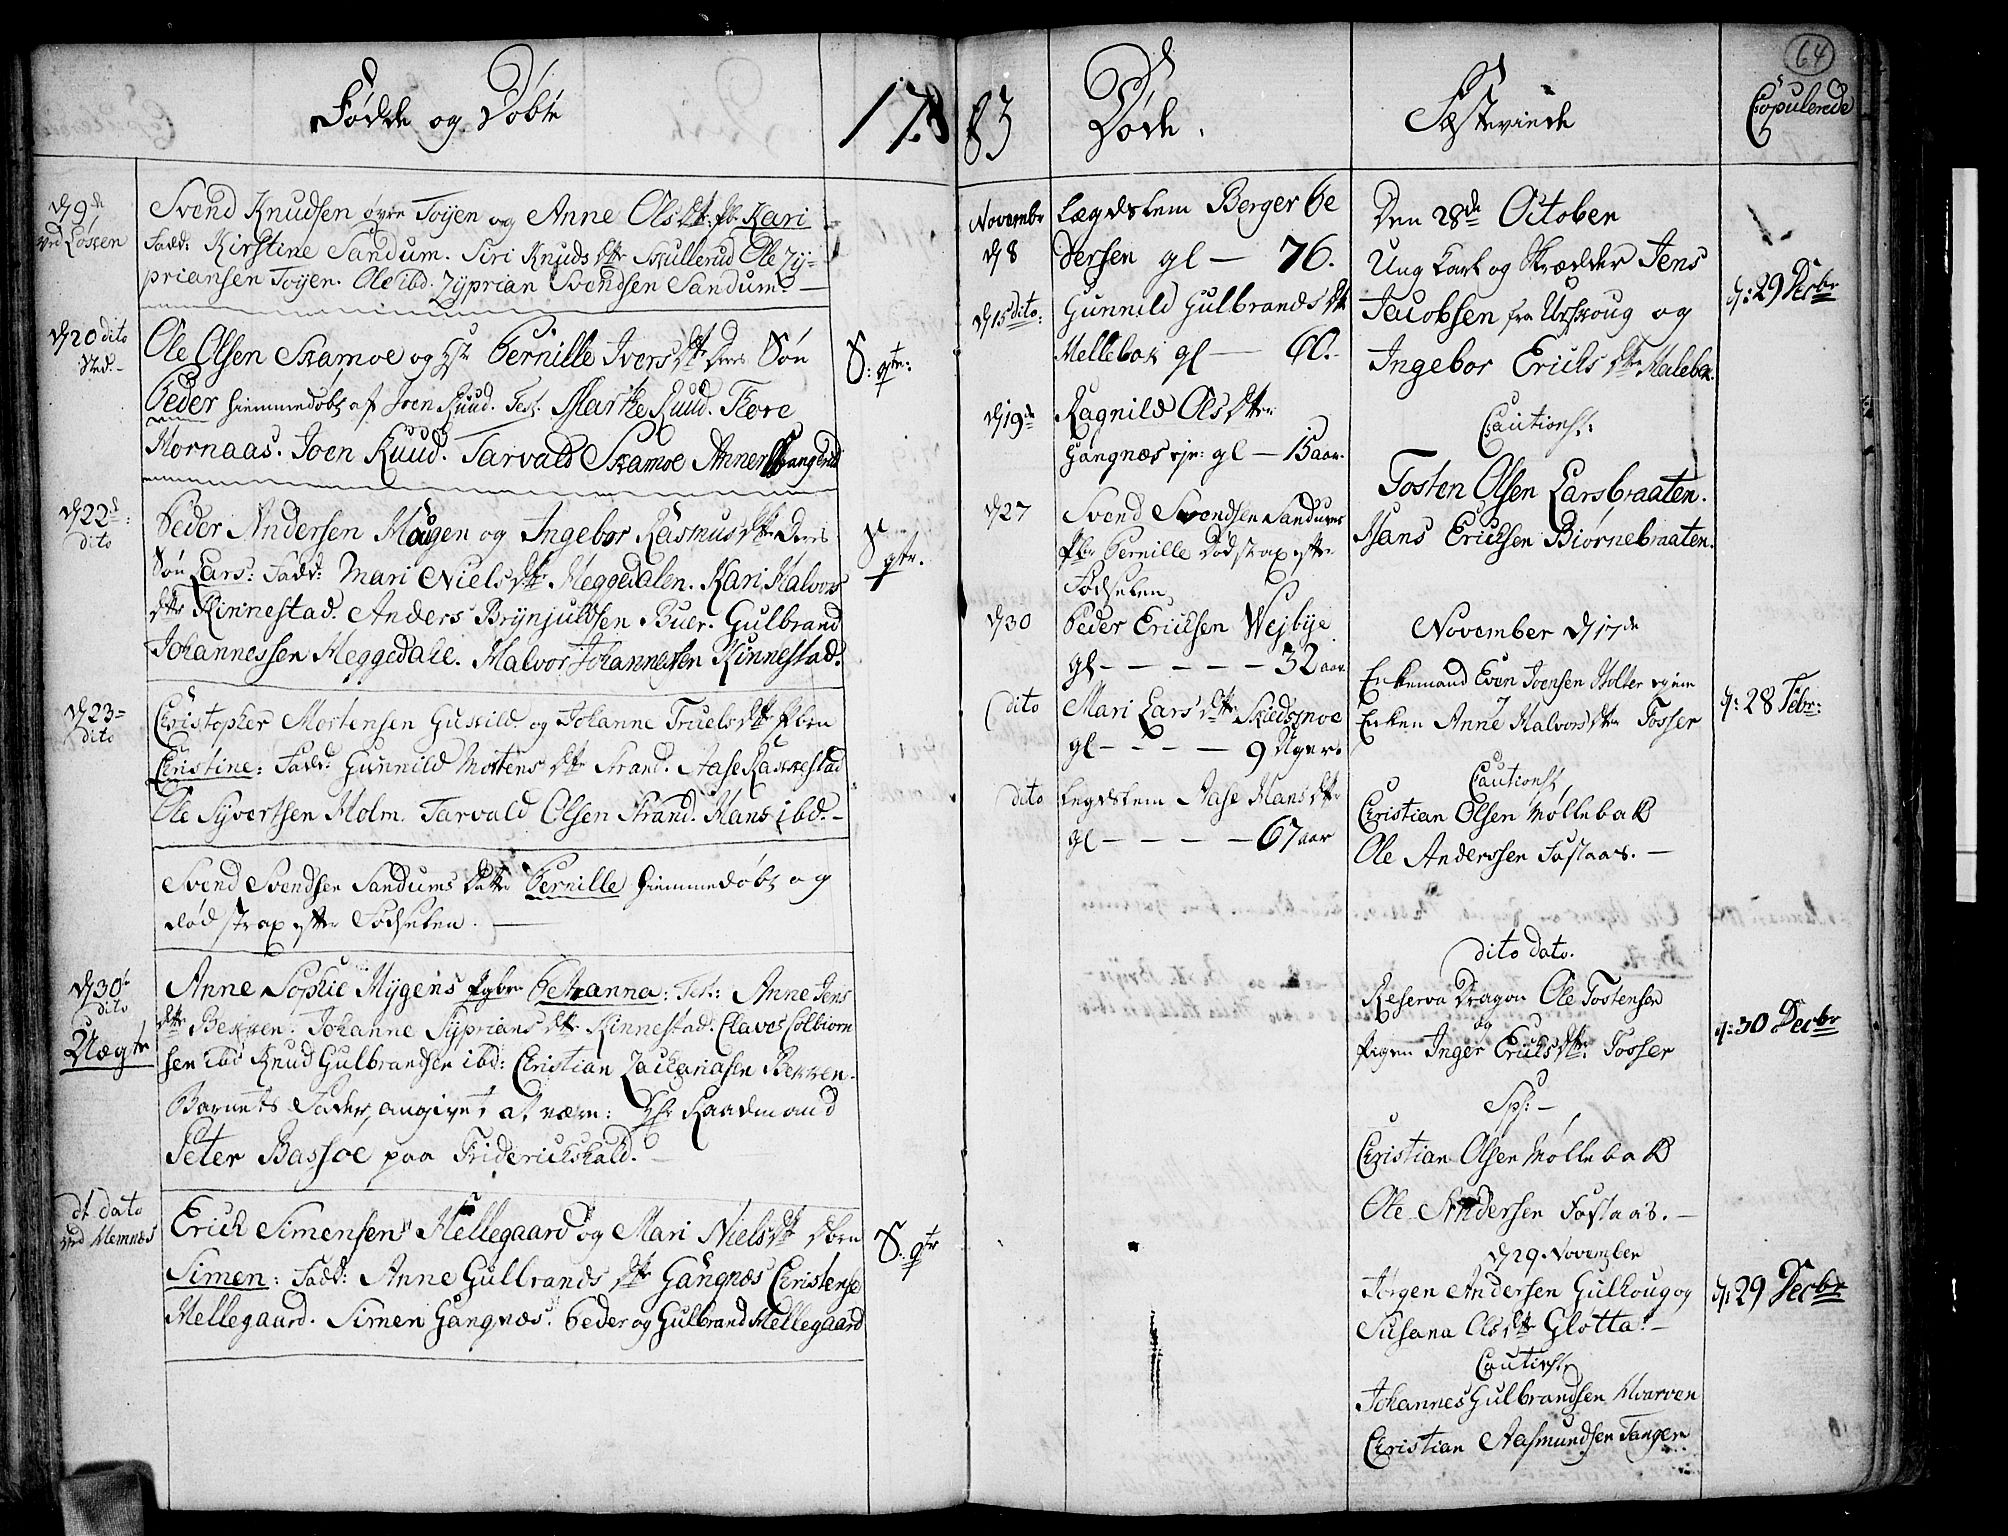 Fødde og Døbte
1783
d 9de
ved Løken
Svend Knudsen øvre Toÿen og Anne Olsdtr: pb: Kari
Fadd: Kirstine Sandum. Siri Knudsdtr Skullerud Ole Zÿ-
priansen Toÿen. Ole ibd. Zÿprian Svendsen Sandum. —
d 20 dito
Ole Olsen Skamoe og Pernille Iversdtr Ders Søn
S: gtr:
Peder hiemmedøbt af Joen Ruud. Test. Marthe Ruud. Tore
Hornaas. Joen Ruud. Tarvald Skamoe Anne
d 22d:
dito
Peder Andersen Mougen og Ingebor Rasmusdtr Ders
S gtr.
Søn Lars: Fadd: Mari Nielsdtr Heggedalen. Kari Halvors
dtr Kinnestad. Anders Brÿnjuldsen Buer. Gulbrand
Johannessen Heggedale. Halvor Johannesen Kinnestad.
d 23-
dito
Christopher Mortensen Gukild og Johanne Truelsdtr
Christine: Fadd: Gunnild Mortensdtr Strand. Aase Kakkestad
Ole Sÿvertsen Holm. Tarvald Olsen Strand. Hans ibd. -
Svend Svendsen Sandums Datter Pernille hiemmedøbt og
død strax efter Fødselen. —
d 30te
dito
Uægte
Anne Sophie Hÿgens pgbr Petranna: Test: Anne Jens
dtr Bekken. Johanne Sÿpriansdtr Kinnestad. Claves Colbiorn
sen ibd Knud Gulbrandsen ibd: Christian Zachariasen Bekken.
Barnets Fader, angivet at være: Hr Raadmand
Peter Bassoe paa Friderichshald. —
dt dato
ved Hemnæs
Erich Simensen Hellegaard og Mari Nielsdtr
S. gtr
Simen: Fadd: Anne Gulbrandsdtr Gangnæs Christense
Hellegaard. Simen Gangnæs. Peder og Gulbrand Hellegaard
Døde.
Novembr
d 8
Lægdslem Berger Pe
dersen gl — 76.
d 15 dito:
Gunnild Gulbrandsdtr
Mellebak gl — 60.
d 19de
Ragnild Olsdtr
Gangnæs gl — 15 aar.
d 27
Svend Svendsen Sandums
pbr Pernille død strax efter
Fødselen
d 30
Peder Ericksen Wejbÿe
gl - - - - - 32 aar
dito
Mari Larsdtr Skiedsmoe
gl - - - - 9 Uger.
dito
Legdslem Aase Hansdtr
gl - - - - 67 aar
Fæsteviede
Den 28de October
Ung Karl og Skrædder Jens
Jacobsen fra Urskoug og
Ingebor Ericksdtr Malebak.
Cautionst:
Tosten Olsen Larsbraaten.
Hans Ericksen Biørnebraaten.
November d 17de
Enkemand Even Joensen Holter
Enken Anne Halvorsdtr Fosser
Cautionst,
Christian Olsen Møllebak
Ole Anderssen Fostaas. —
dito dato.
Reserva Dragon Ole Tostensen
og
Pigen Inger Ericksdtr Fosser
Sps: —
Christian Olsen Møllebak
Ole Andersen Fostaas. —
d 29 November
Jørgen Andersen Gulkoug og
Susana Olsdtr Gløtta. —
Cautionst
Johannes Gulbrandsen Hvarven
Christian Aasmundsen Tangen
64
Copulerede
d: 29 Decbr
d: 28 Febr:
d: 30 Decbr
d: 29 Decbr